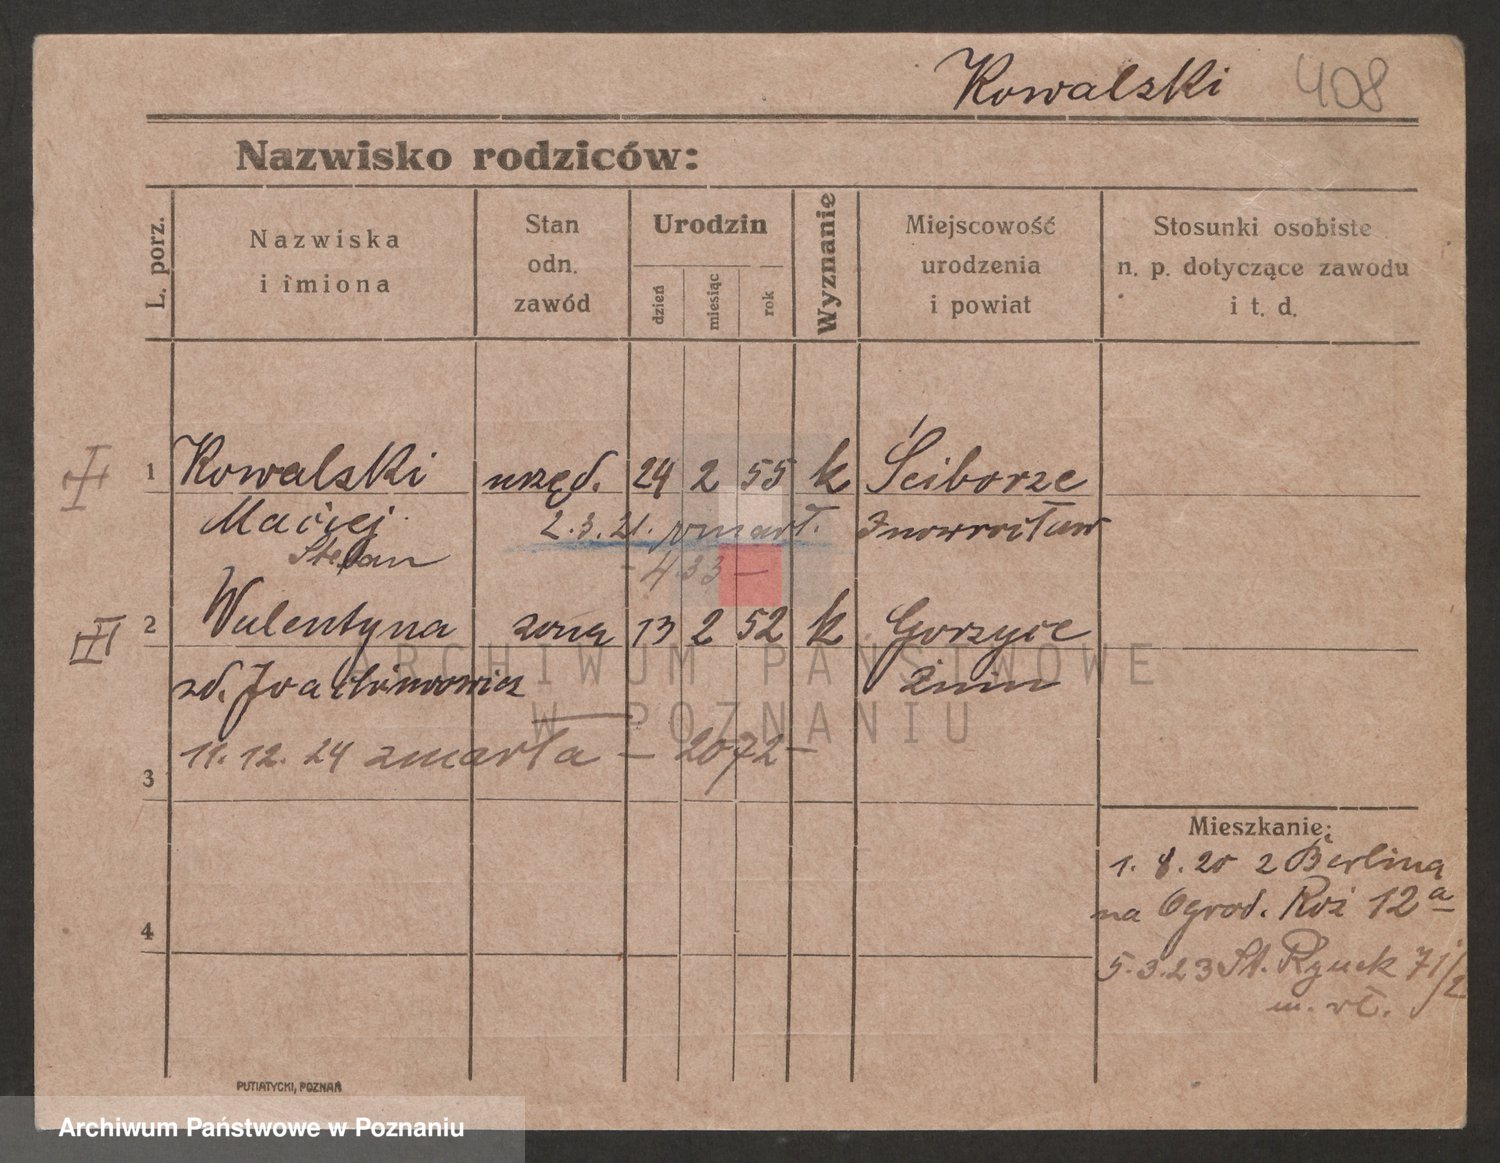 Kowalski 408
Nazwisko rodziców:
L. porz.
Nazwiska
i imiona
Stan
odn.
zawód
Urodzin
dzień
miesiąc
rok
Wyznanie
Miejscowość
urodzenia
i powiat
Stosunki osobiste
n. p. dotyczące zawodu
i t. d.
1 Kowalski urzęd. 24 2 55 k Ściborze
Maciej 2.3.21. zmarł. Inowrocław
Stefan - 433 -
2 Walentyna żona 13 2 52 k Gorzyce
zd. Żnin
11.12.24 zmarła - 2072 -
3
Mieszkanie:
1. 8. 20 z Berlina
na Ogrod. Roż 12a
4
5.3.23 St. Rynek 71/2
m. wł.
PUTIATYCKI, POZNAŃ
ARCHIWUM PAŃSTWOWE
W POZNANIU
Archiwum Państwowe w Poznaniu